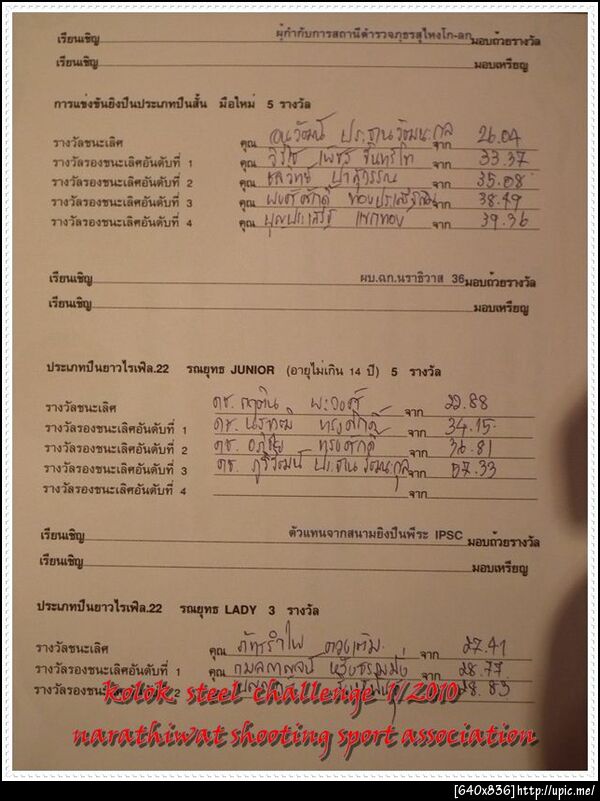 ผู้กำกับการสถานีตำรวจภูธรสุไหงโก-ลก
เรียนเชิญ มอบถ้วยรางวัล
เรียนเชิญ มอบเหรียญ
การแข่งขันยิงปืนประเภทปืนสั้น มือใหม่ 5 รางวัล
รางวัลชนะเลิศ คุณ ประธานวัฒนะกุล จาก 26.04
รางวัลรองชนะเลิศอันดับที่ 1 คุณ วิชัย เพ็ชร จาก 33.37
รางวัลรองชนะเลิศอันดับที่ 2 คุณ จาก 35.08
รางวัลรองชนะเลิศอันดับที่ 3 คุณ จาก 38.49
รางวัลรองชนะเลิศอันดับที่ 4 คุณ จาก 39.36
ผบ.ฉก.นราธิวาส 36
เรียนเชิญ มอบถ้วยรางวัล
เรียนเชิญ มอบเหรียญ
ประเภทปืนยาวไรเฟิล.22 รณยุทธ JUNIOR (อายุไม่เกิน 14 ปี) 5 รางวัล
รางวัลชนะเลิศ ดช. จาก 22.88
รางวัลรองชนะเลิศอันดับที่ 1 ดช. ทรงศักดิ์ จาก 34.15
รางวัลรองชนะเลิศอันดับที่ 2 ดช. อภิชัย ทรงศักดิ์ จาก 36.81
รางวัลรองชนะเลิศอันดับที่ 3 ดช. ภูริวัฒน์ ประธานวัฒนะกุล จาก 57.33
รางวัลรองชนะเลิศอันดับที่ 4 จาก
ตัวแทนจากสนามยิงปืนพีระ IPSC
เรียนเชิญ มอบถ้วยรางวัล
เรียนเชิญ มอบเหรียญ
ประเภทปืนยาวไรเฟิล.22 รณยุทธ LADY 3 รางวัล
รางวัลชนะเลิศ คุณ จาก 27.41
รางวัลรองชนะเลิศอันดับที่ 1 คุณ จาก 28.77
รางวัลรองชนะเลิศอันดับที่ 2 28.83
kolok steel challenge 1/2010
narathiwat shooting sport association
[640x836]http://upic.me/